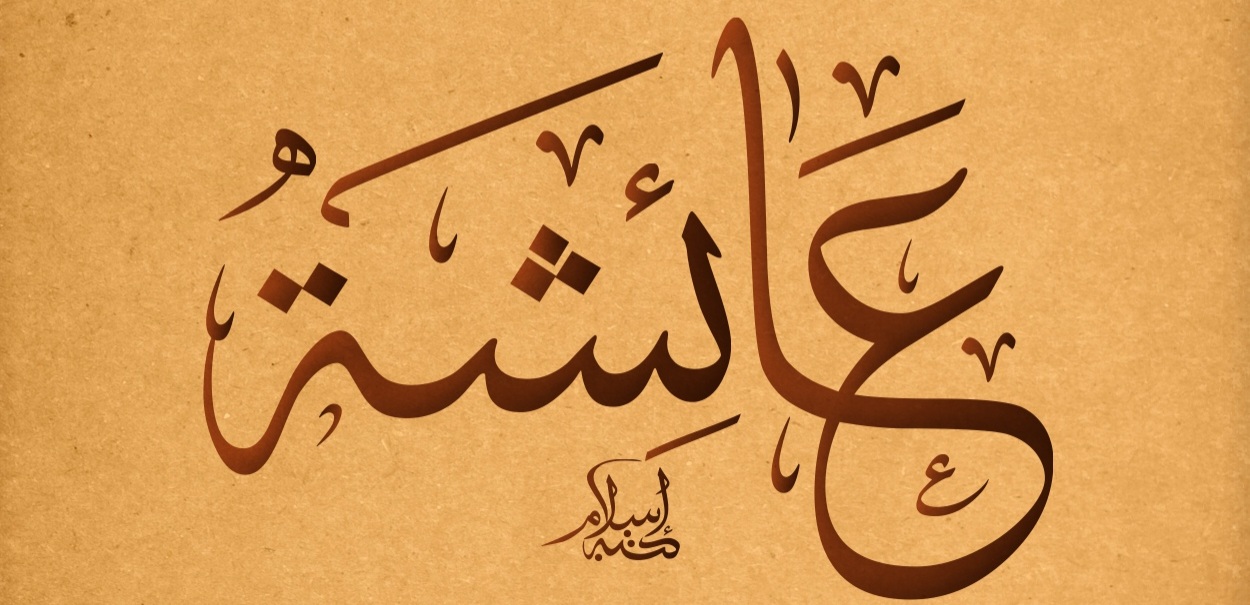 عَائِشَةُ
كتبه إسلام